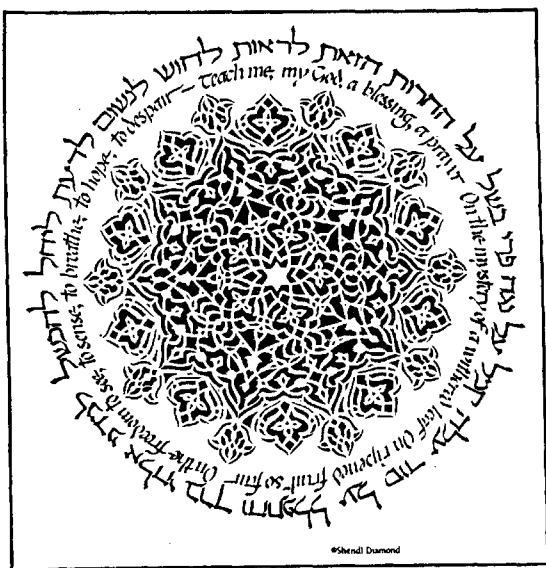 למדני אלהי ברך והתפלל על סוד עלה קמל על נגה פרי בשל על החרות הזאת לראות לחוש לנשום לדעת ליחל להכשל
Teach me, my God, a blessing, a prayer On the mystery of a withered leaf On ripened fruit so fair On the freedom to see, to sense, to breathe, to hope, to despair—
©Shendl Diamond